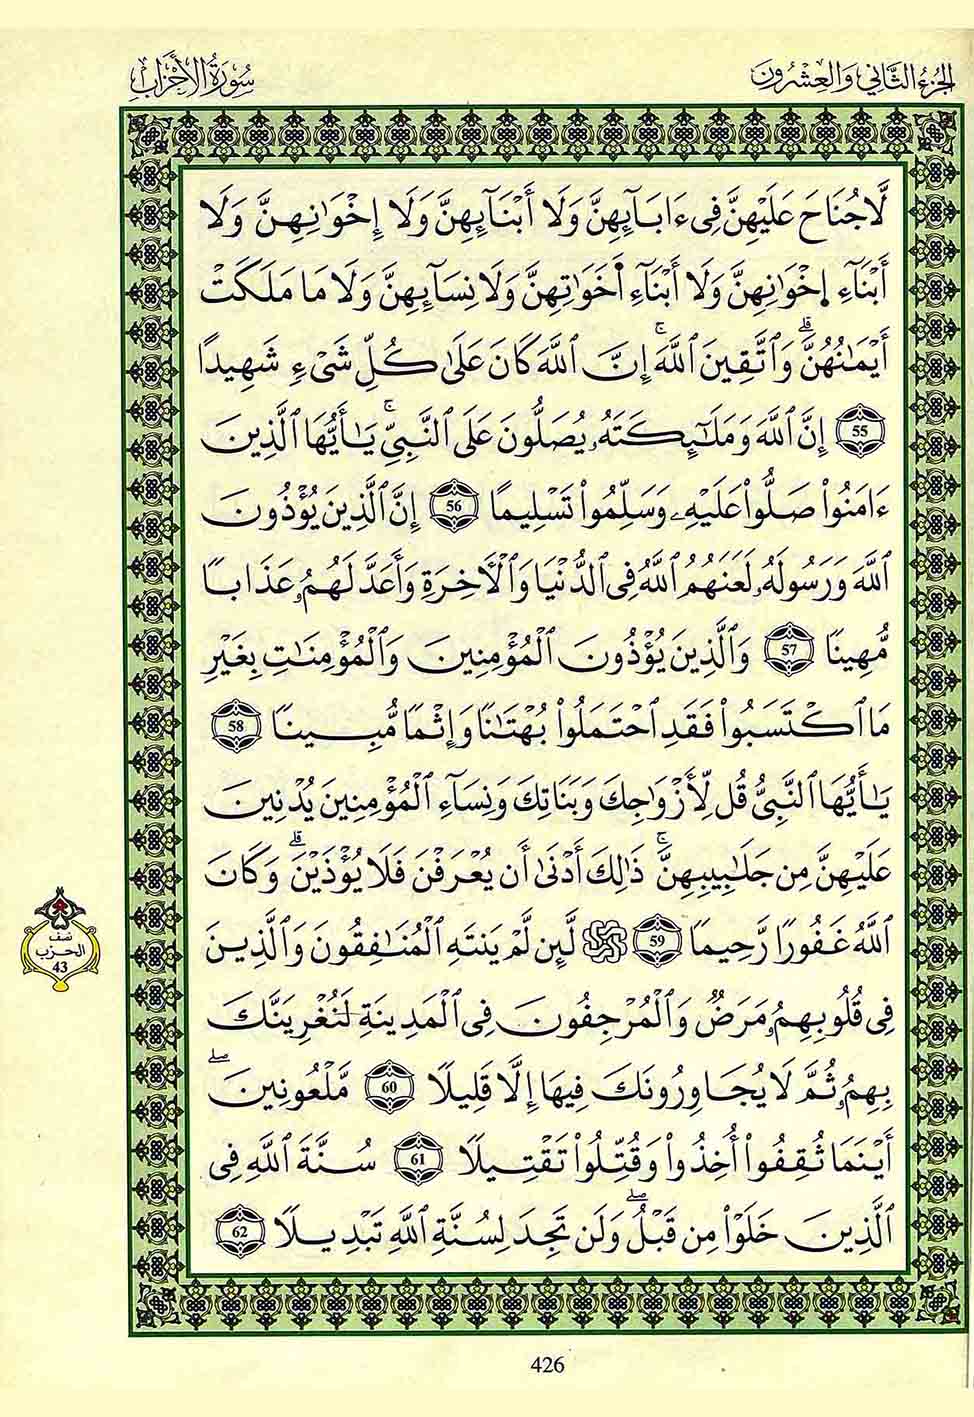 الجزء الثاني والعشرون
سورة الأحزاب
لَّا جُنَاحَ عَلَيْهِنَّ فِىٓ ءَابَآئِهِنَّ وَلَآ أَبْنَآئِهِنَّ وَلَآ إِخْوَٰنِهِنَّ وَلَآ
أَبْنَآءِ إِخْوَٰنِهِنَّ وَلَآ أَبْنَآءِ أَخَوَٰتِهِنَّ وَلَا نِسَآئِهِنَّ وَلَا مَا مَلَكَتْ
أَيْمَٰنُهُنَّ ۗ وَٱتَّقِينَ ٱللَّهَ ۚ إِنَّ ٱللَّهَ كَانَ عَلَىٰ كُلِّ شَىْءٍ شَهِيدًا
55 إِنَّ ٱللَّهَ وَمَلَٰٓئِكَتَهُۥ يُصَلُّونَ عَلَى ٱلنَّبِىِّ ۚ يَٰٓأَيُّهَا ٱلَّذِينَ
ءَامَنُوا۟ صَلُّوا۟ عَلَيْهِ وَسَلِّمُوا۟ تَسْلِيمًا 56 إِنَّ ٱلَّذِينَ يُؤْذُونَ
ٱللَّهَ وَرَسُولَهُۥ لَعَنَهُمُ ٱللَّهُ فِى ٱلدُّنْيَا وَٱلْـَٔاخِرَةِ وَأَعَدَّ لَهُمُۥ عَذَابًا
مُّهِينًا 57 وَٱلَّذِينَ يُؤْذُونَ ٱلْمُؤْمِنِينَ وَٱلْمُؤْمِنَٰتِ بِغَيْرِ
مَا ٱكْتَسَبُوا۟ فَقَدِ ٱحْتَمَلُوا۟ بُهْتَٰنًا وَإِثْمًا مُّبِينًا 58
يَٰٓأَيُّهَا ٱلنَّبِىُّ قُل لِّأَزْوَٰجِكَ وَبَنَاتِكَ وَنِسَآءِ ٱلْمُؤْمِنِينَ يُدْنِينَ
عَلَيْهِنَّ مِن جَلَٰبِيبِهِنَّ ۚ ذَٰلِكَ أَدْنَىٰٓ أَن يُعْرَفْنَ فَلَا يُؤْذَيْنَ ۗ وَكَانَ
ٱللَّهُ غَفُورًا رَّحِيمًا 59 لَّئِن لَّمْ يَنتَهِ ٱلْمُنَٰفِقُونَ وَٱلَّذِينَ
فِى قُلُوبِهِمُۥ مَرَضٌ وَٱلْمُرْجِفُونَ فِى ٱلْمَدِينَةِ لَنُغْرِيَنَّكَ
بِهِمُۥ ثُمَّ لَا يُجَاوِرُونَكَ فِيهَآ إِلَّا قَلِيلًا 60 مَّلْعُونِينَ ۖ
أَيْنَمَا ثُقِفُوٓا۟ أُخِذُوا۟ وَقُتِّلُوا۟ تَقْتِيلًا 61 سُنَّةَ ٱللَّهِ فِى
ٱلَّذِينَ خَلَوْا۟ مِن قَبْلُ ۖ وَلَن تَجِدَ لِسُنَّةِ ٱللَّهِ تَبْدِيلًا 62
نصف
الحزب
43
426